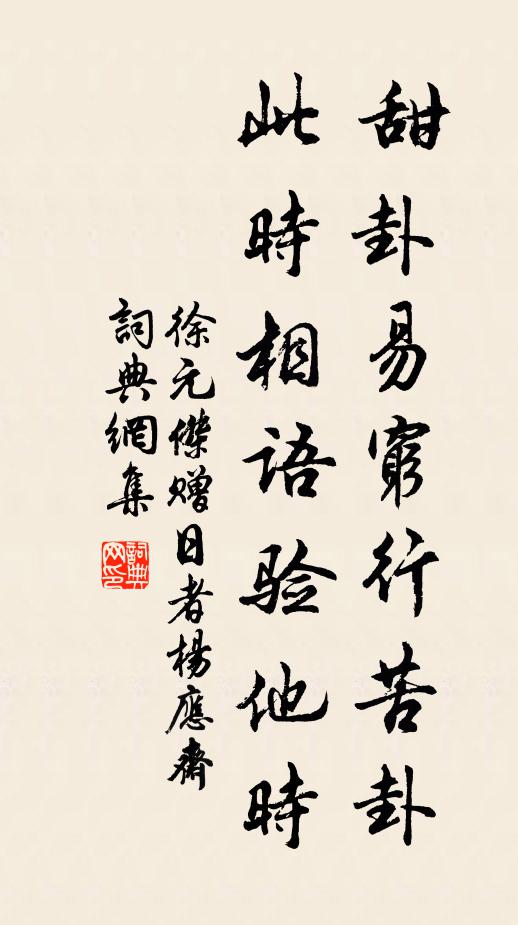 甜卦易窮行苦卦
此時相語验他時
徐元傑赠日者楊應齋
詞典網集
詞典网印